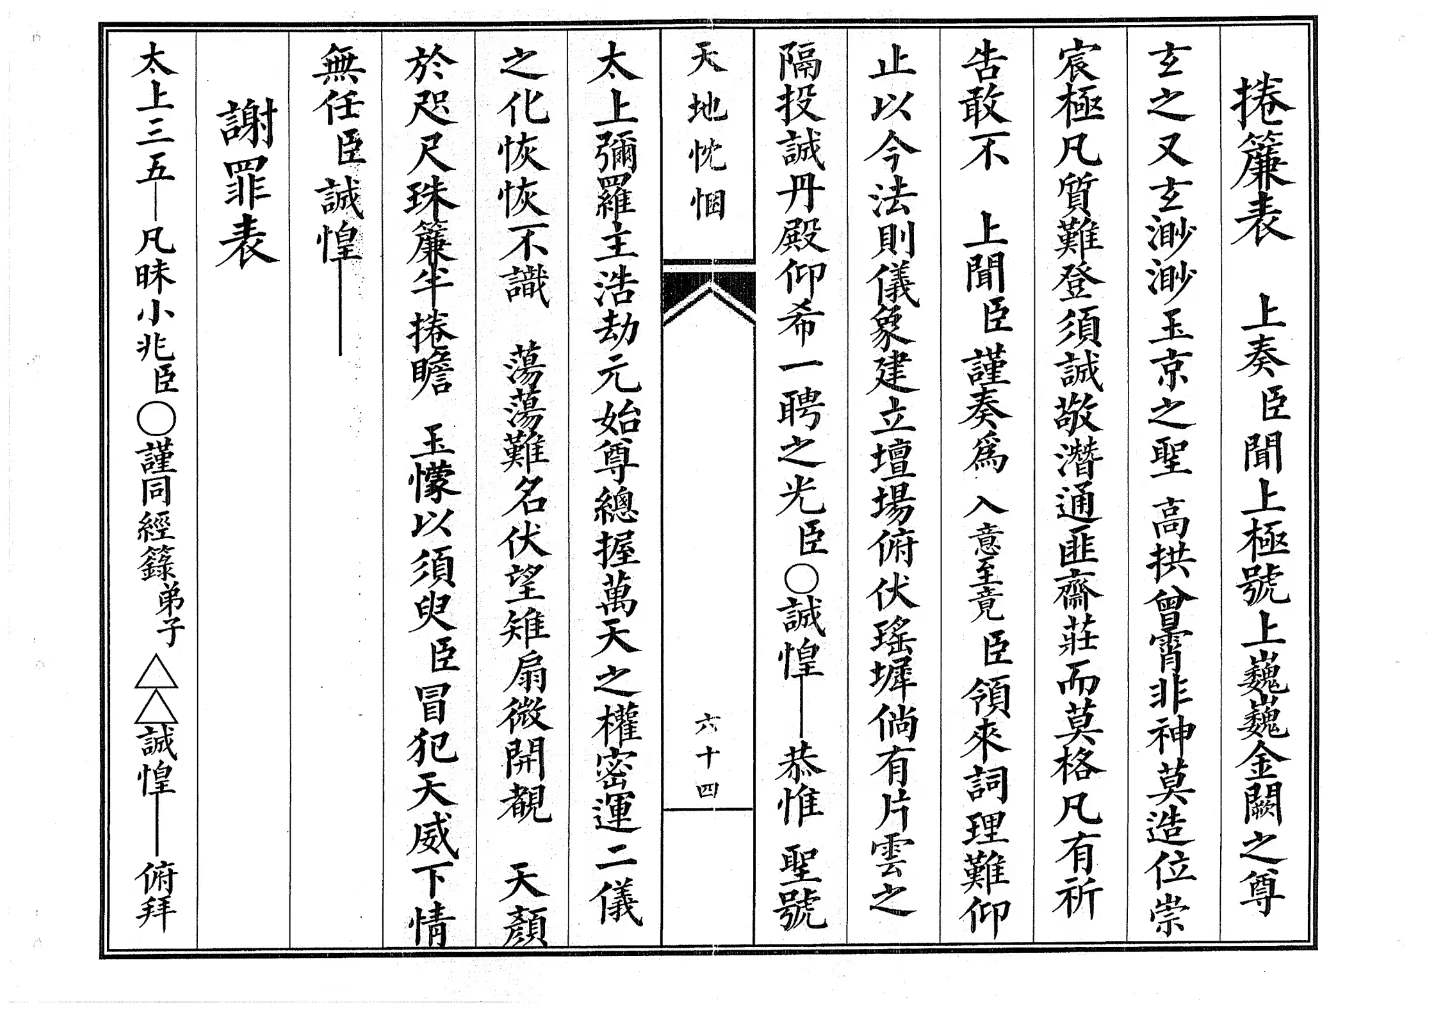 捲簾表　上奏臣聞上極號上巍巍金闕之尊
玄之又玄渺渺玉京之聖高拱曾霄非神莫造位崇
宸極凡質難登須誠敬潛通匪齋莊而莫格凡有祈
告敢不　上聞臣謹奏爲　入意至竟臣領來詞理難仰
止以今法則儀象建立壇場俯伏瑤墀倘有片雲之
隔投誠丹殿仰希一聘之光臣〇誠惶——恭惟　聖號
天地忱悃
六十四
太上彌羅主浩劫元始尊總握萬天之權密運二儀
之化恢恢不識　蕩蕩難名伏望雉扇微開覩　天顏
於咫尺珠簾半捲瞻　玉懞以須臾臣冒犯天威下情
無任臣誠惶——
謝罪表
太上三五—凡昧小兆臣〇謹同經籙弟子△△誠惶——俯拜